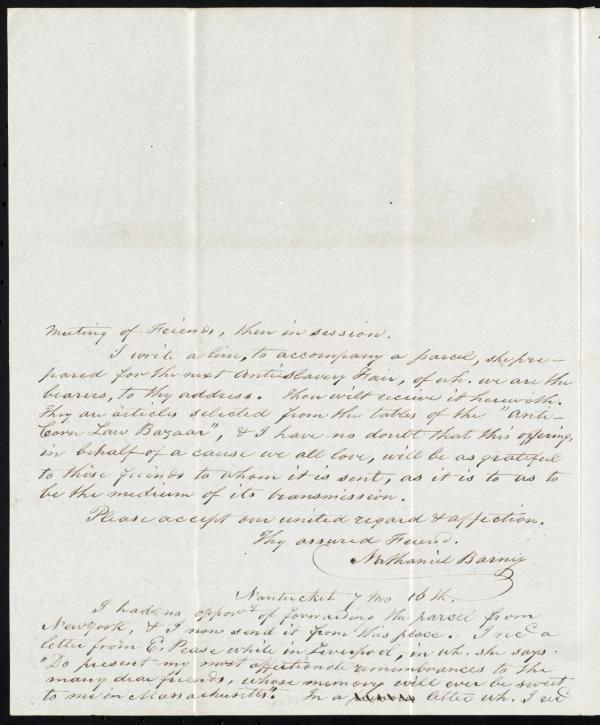 Meeting of Friends, then in session.
I write a line, to accompany a parcel, she pre-
pared for the next Antislavery Fair, of wh. we are the
bearers, to thy address. Thou wilt receive it herewith.
They are articles selected from the tables of the "Anti-
Corn Law Bazaar", & I have no doubt that this offering,
in behalf of a cause we all love, will be as grateful
to those friends to whom it is sent, as it is to us to
be the medium of its transmission.
Please accept our united regard & affection.
Thy assured Friend.
Nathaniel Barney
Nantucket 7 Mo 16th.
I had no opporty of forwarding the parcel from
New York, & I now send it from this place. I recd a
letter from E. Pease while in Liverpool, in wh. she says.
"Do present my most affectionate remembrances to the
many dear friends, whose memory will ever be sweet
to me in Massachusetts". In a letter wh. I recd